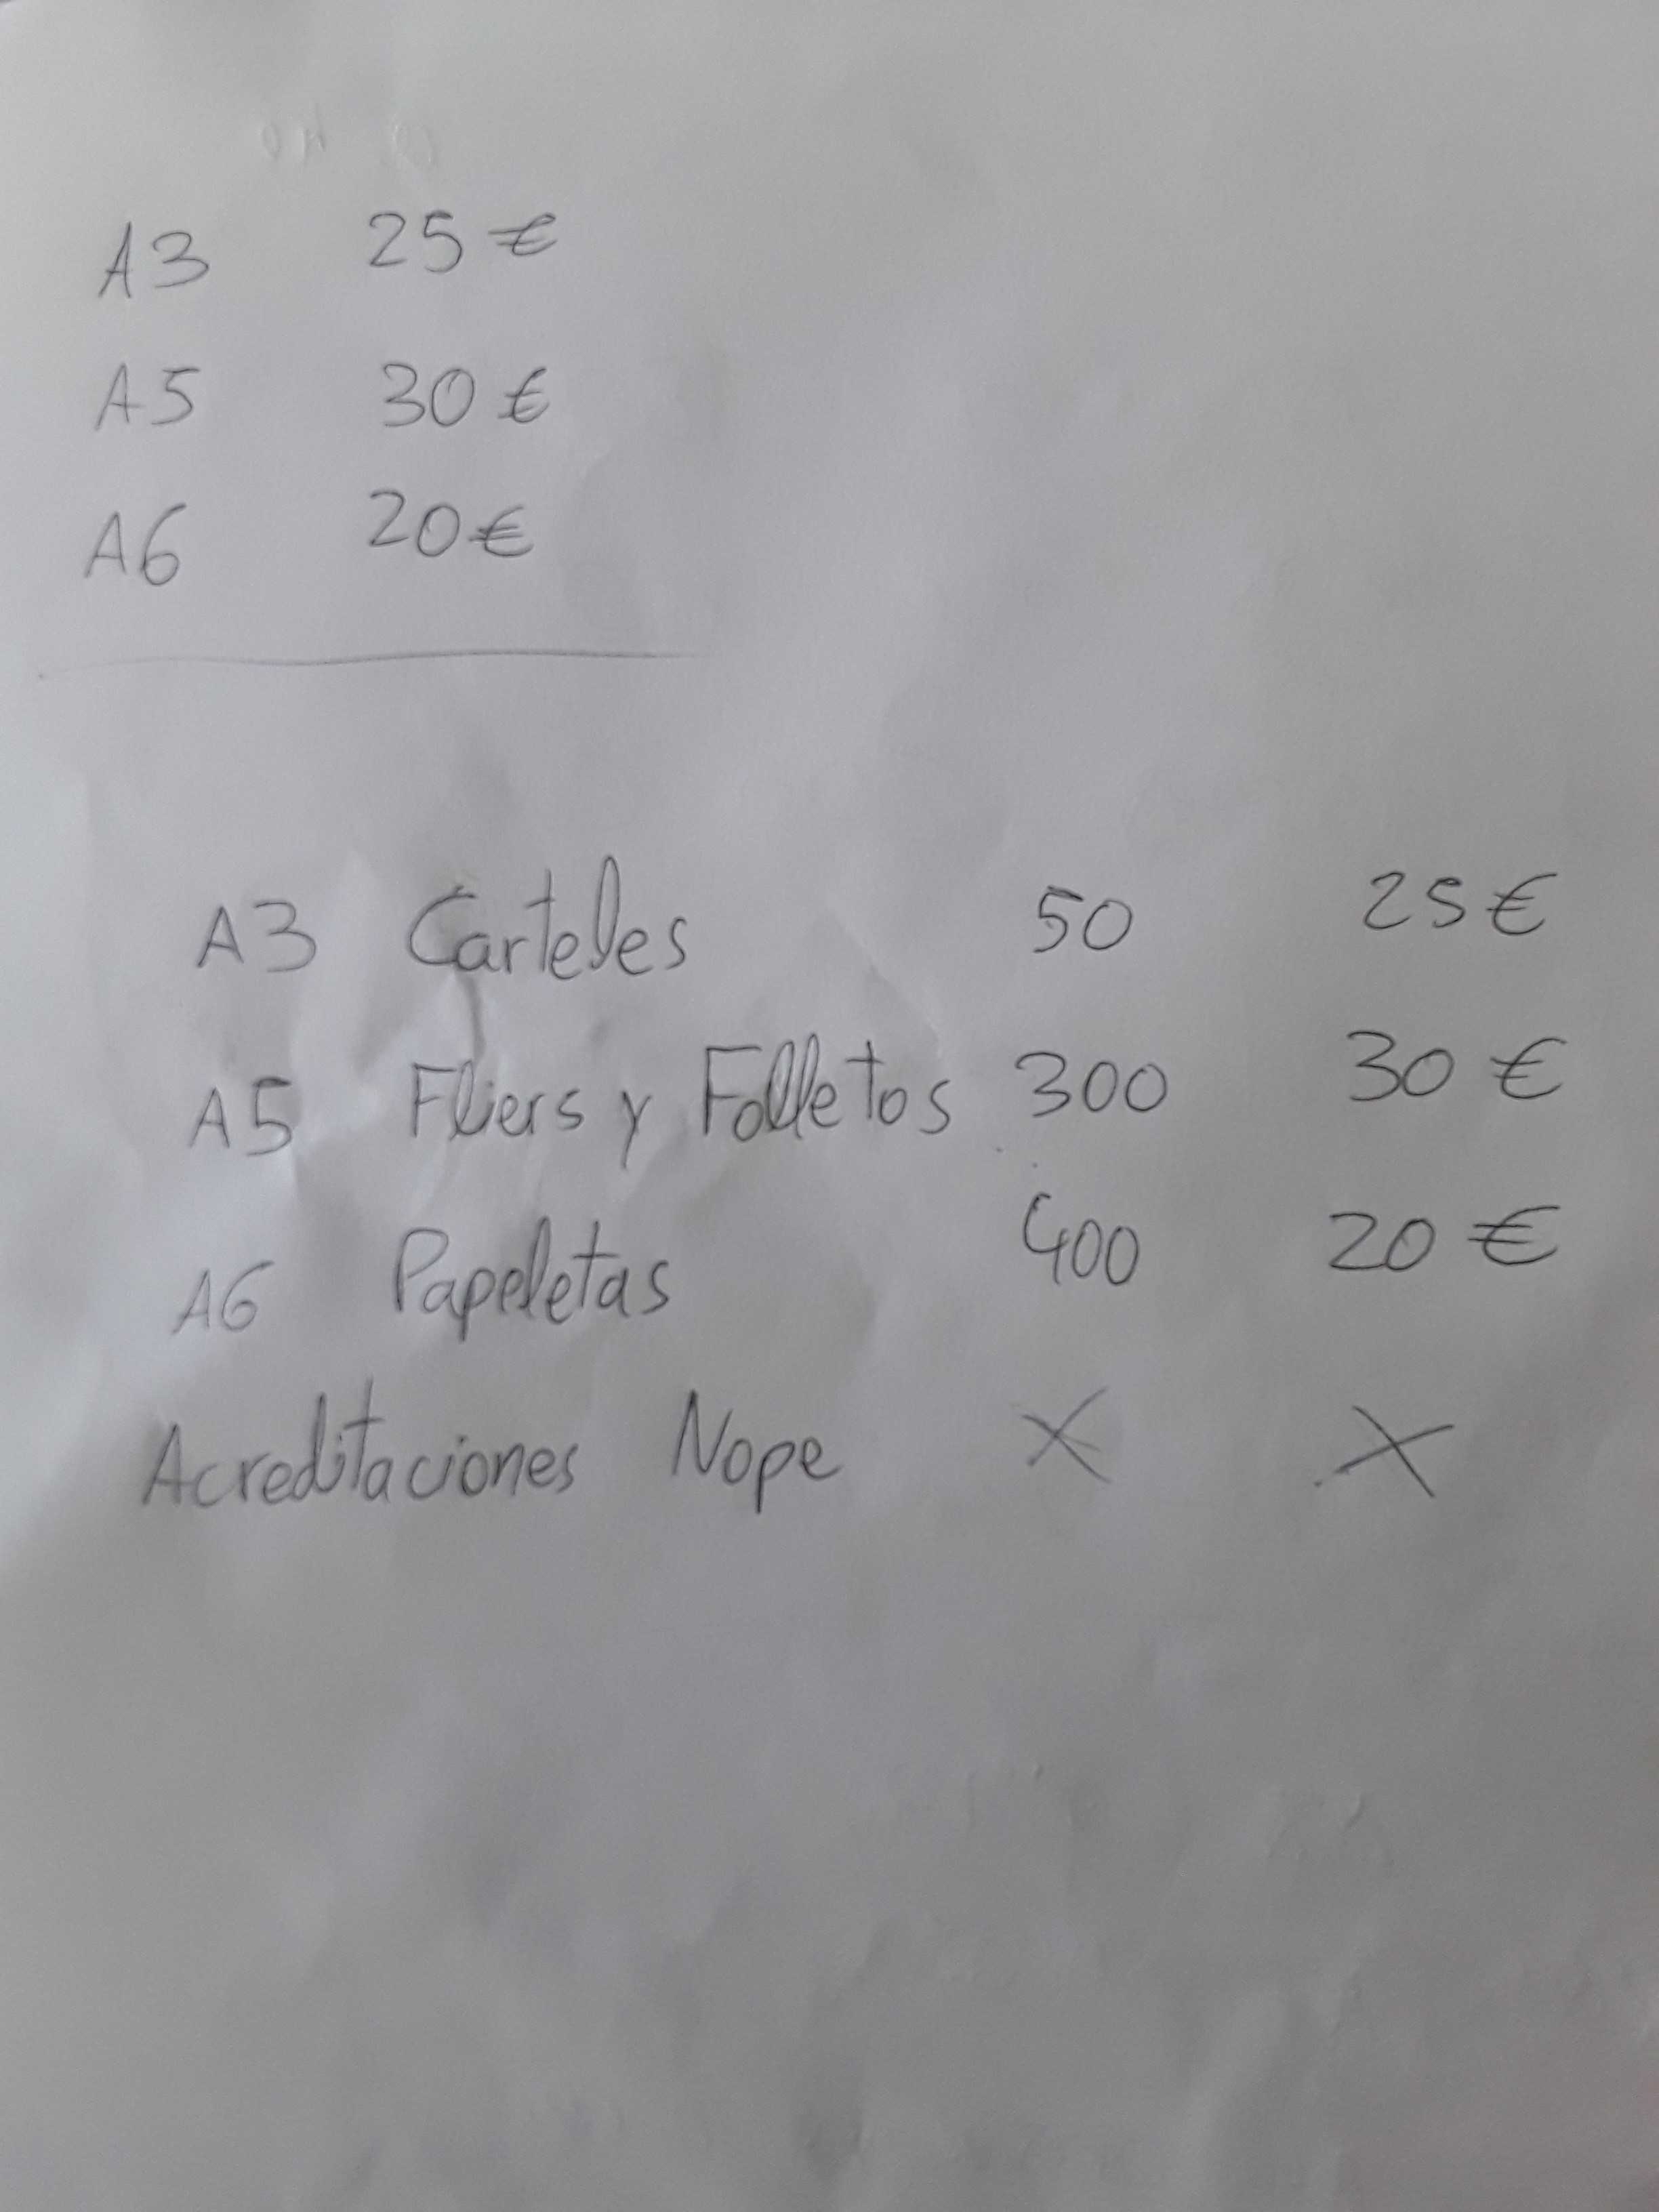 A3 25 €
A5 30 €
A6 20 €
A3 Carteles 50 25 €
A5 Fliers y Folletos 300 30 €
A6 Papeletas 400 20 €
Acreditaciones Nope X X